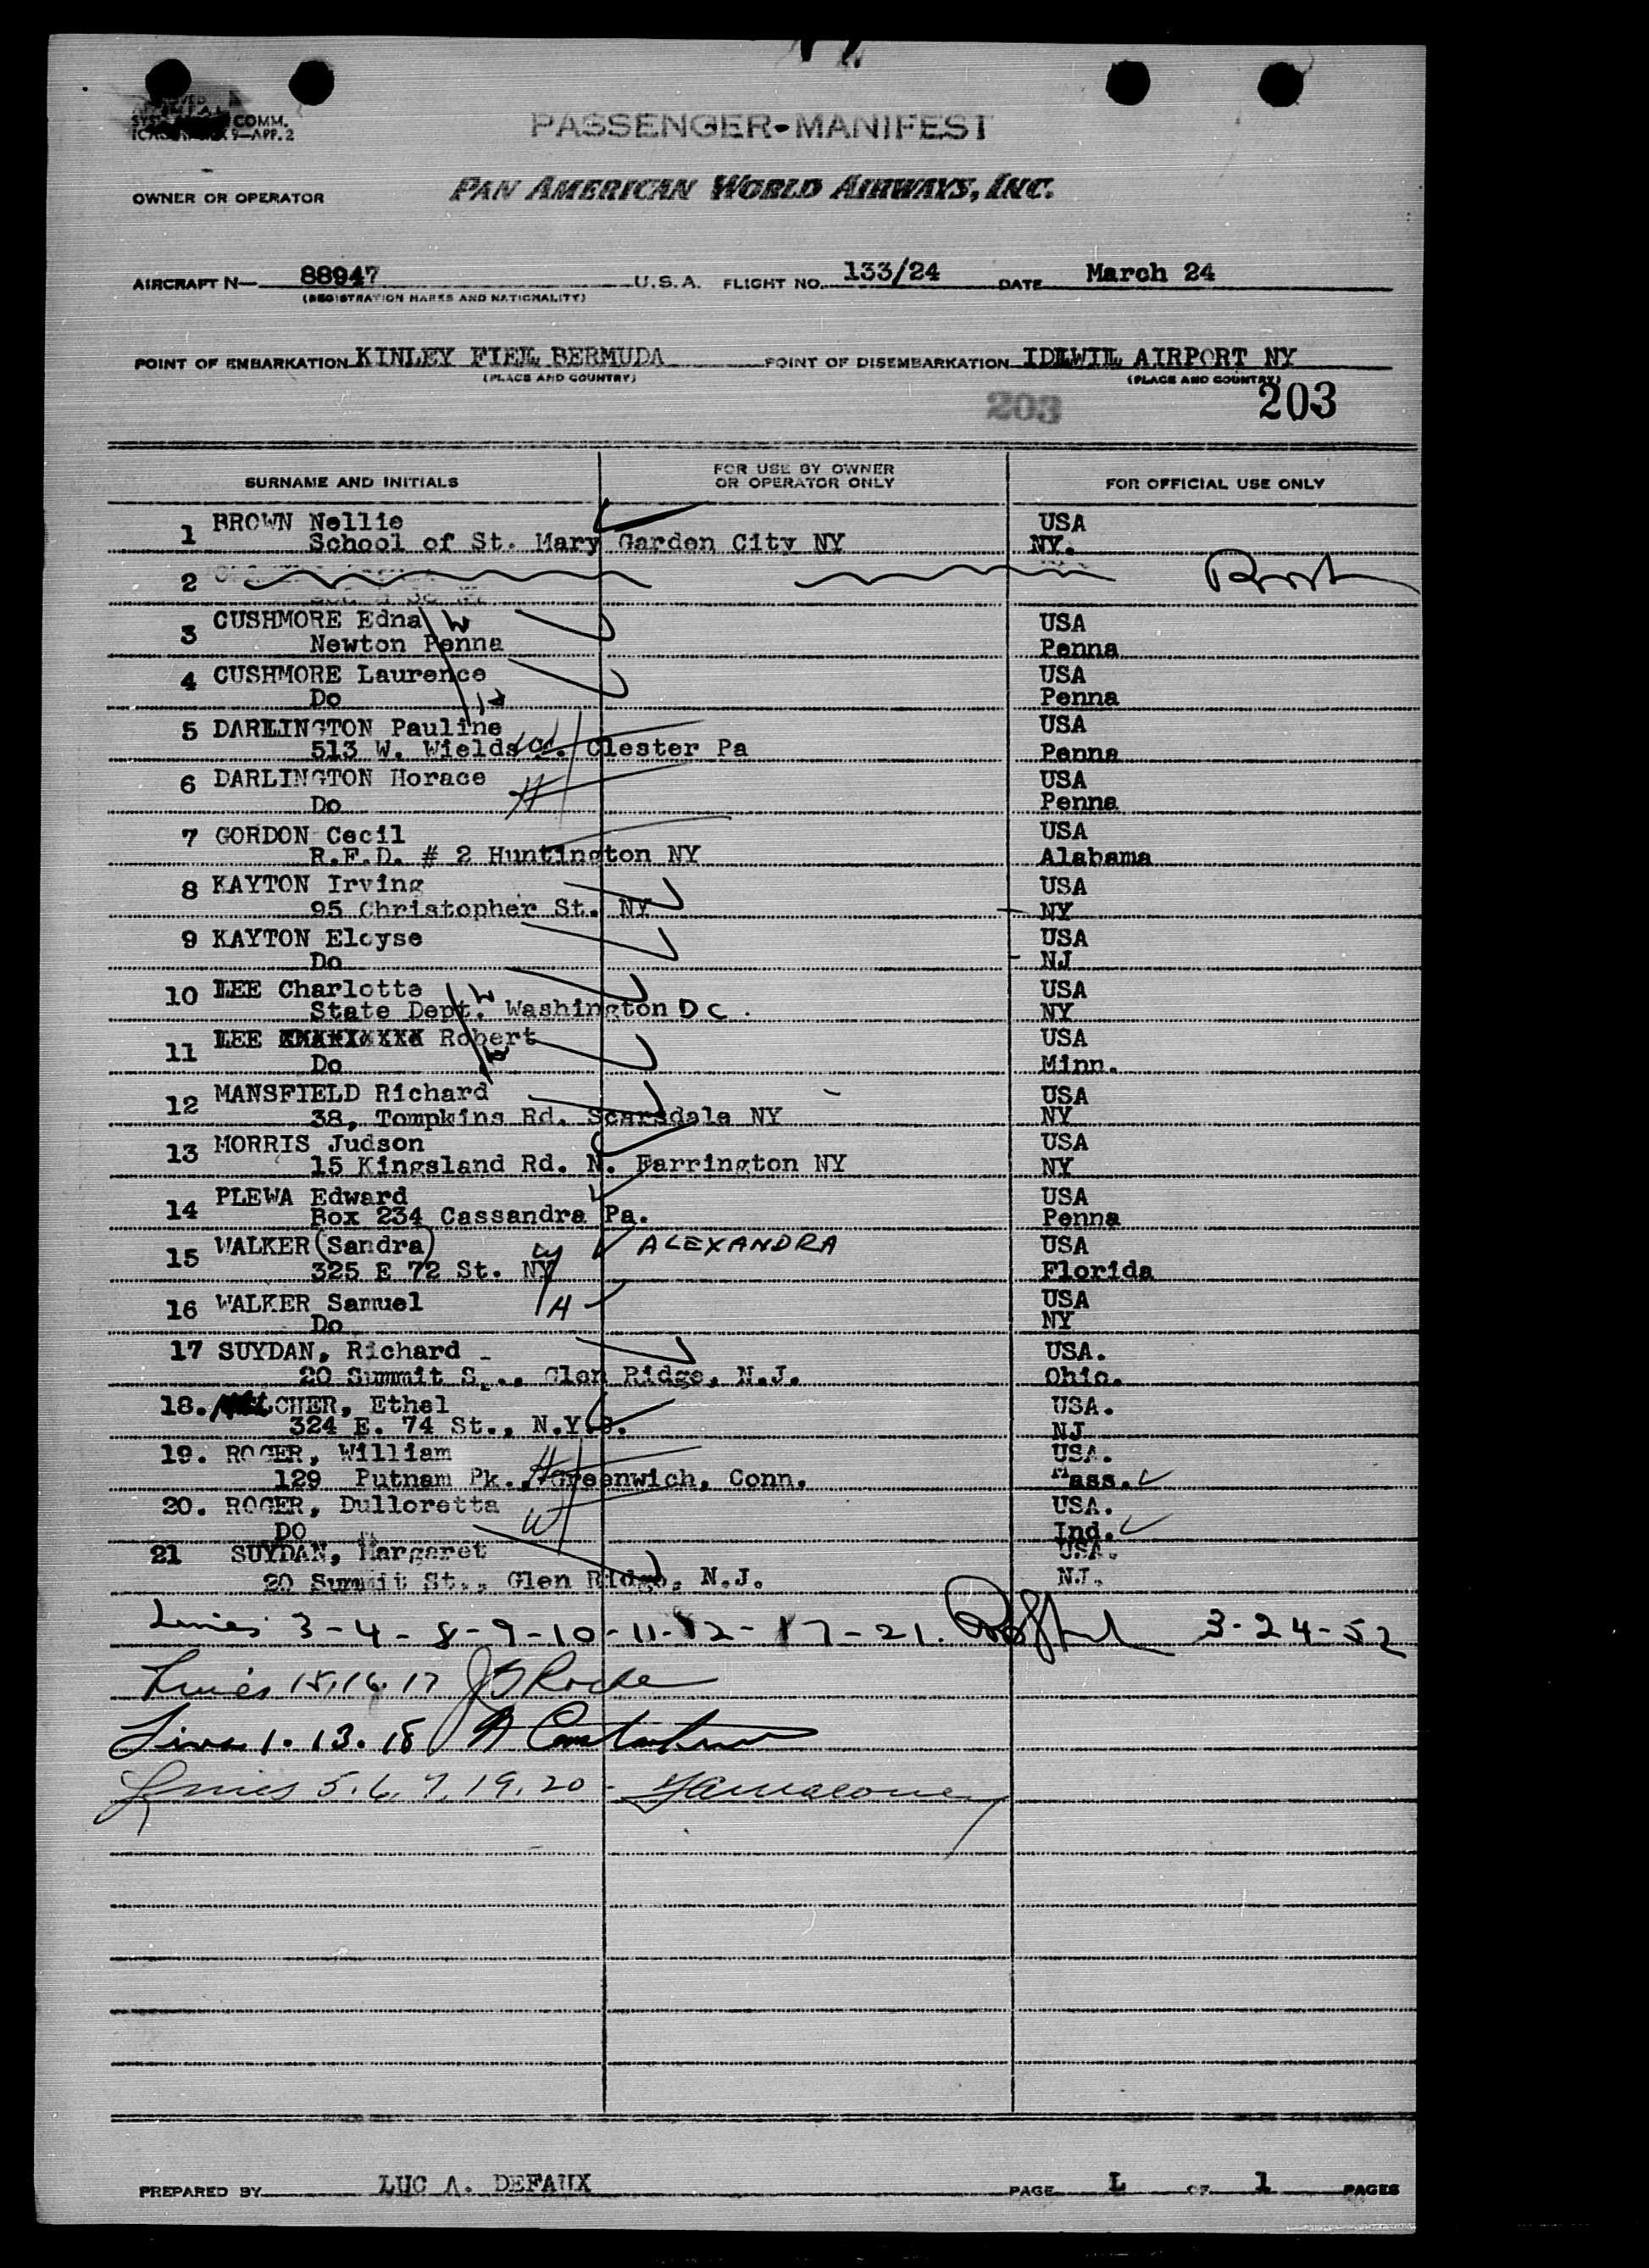 COMM.
9—APP. 2
PASSENGER-MANIFEST
OWNER OR OPERATOR PAN AMERICAN WORLD AIRWAYS, INC.
AIRCRAFT N— 88947 U.S.A. FLIGHT NO. 133/24 DATE March 24
(REGISTRATION MARKS AND NATIONALITY)
POINT OF EMBARKATION KINLEY FIEL BERMUDA POINT OF DISEMBARKATION IDLWIL AIRPORT NY
(PLACE AND COUNTRY) (PLACE AND COUNTRY)
203 203
SURNAME AND INITIALS FOR USE BY OWNER OR OPERATOR ONLY FOR OFFICIAL USE ONLY
1 BROWN Nellie USA
School of St. Mary Garden City NY NY.
2
3 CUSHMORE Edna W USA
Newton Penna Penna
4 CUSHMORE Laurence USA
Do Penna
5 DARLINGTON Pauline USA
513 W. Wields Clester Pa Penna
6 DARLINGTON Horace USA
Do H Penna
7 GORDON Cecil USA
R.F.D. # 2 Huntington NY Alabama
8 KAYTON Irving USA
95 Christopher St. NY NY
9 KAYTON Eloyse USA
Do NJ
10 LEE Charlotte W USA
State Dept. Washington D C. NY
11 LEE Robert USA
Do Minn.
12 MANSFIELD Richard USA
38, Tompkins Rd. Scarsdale NY NY
13 MORRIS Judson USA
15 Kingsland Rd. N. Farrington NY NY
14 PLEWA Edward USA
Box 234 Cassandra Pa. Penna
15 WALKER (Sandra) ALEXANDRA USA
325 E 72 St. NY W Florida
16 WALKER Samuel H USA
Do NY
17 SUYDAN, Richard USA.
20 Summit S.., Glen Ridge, N.J. Ohio.
18. CHER, Ethel USA.
324 E. 74 St., N.Y.C. NJ
19. ROGER, William H USA.
129 Putnam Pk., Greenwich, Conn. Mass.
20. ROGER, Dulloretta USA.
DO W Ind.
21 SUYDAN, Margaret USA.
20 Summit St., Glen Ridge, N.J. NJ.
Lines 3-4-8-9-10-11-12-17-21. 3-24-52
Lines 15, 16, 17 Roche
Lines 1. 13. 18
Lines 5, 6, 7, 19, 20 -
PREPARED BY LUC A. DEFAUX PAGE L OF 1 PAGES